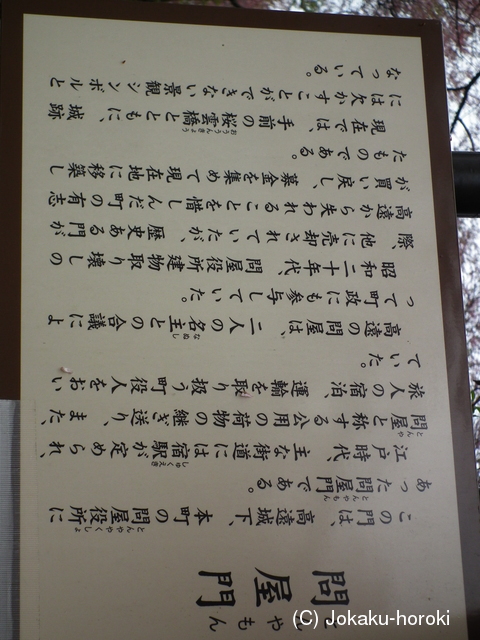 とんやもん
問屋門
この門は、高遠城下、本町の問屋役所に
とんややくしょ
あった問屋門である。
とんやもん
江戸時代、主な街道には宿駅が定められ、
しゅくえき
問屋と称する公用の荷物の継ぎ送り、また、
とんや
旅人の宿泊、運輸を取り扱う町役人をおい
ていた。
高遠の問屋は、二人の名主との合議によ
なぬし
って町政にも参与していた。
昭和二十年代、問屋役所建物取り壊しの
際、他に売却されていたが、歴史ある門が
高遠から失われることを惜しんだ町の有志
が買い戻し、募金を集めて現在地に移築し
たものである。
現在では、手前の桜雲橋とともに、城跡
おううんきょう
には欠かすことができない景観シンボルと
なっている。
(C) Jokaku-horoki